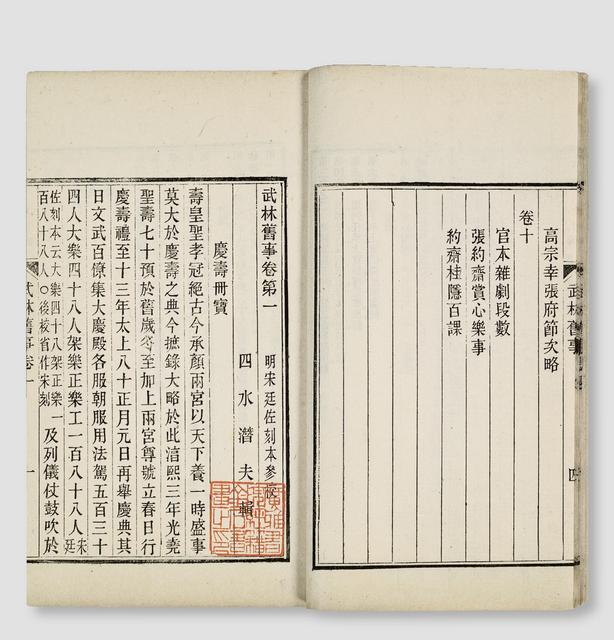 武林舊事
四
高宗幸張府節次略
卷十
官本雜劇段數
張約齋賞心樂事
約齋桂隱百課
武林舊事卷第一 明宋廷佐刻本參校
四水潛夫輯
慶壽冊寶
壽皇聖孝冠絕古今承顏兩宮以天下養一時盛事
莫大於慶壽之典今摭錄大略於此湻熙三年光堯
聖壽七十預於舊歲冬至加上兩宮尊號立春日行
慶壽禮至十三年太上八十正月元日再舉慶典其
日文武百僚集大慶殿各服朝服用法駕五百三十
四人大樂四十八人架樂正樂工一百八十八人宋廷
佐刻本云大樂四十八架正樂一
百八十八人〇後核省作宋刻
及列儀仗鼓吹於
武林舊事卷一
一